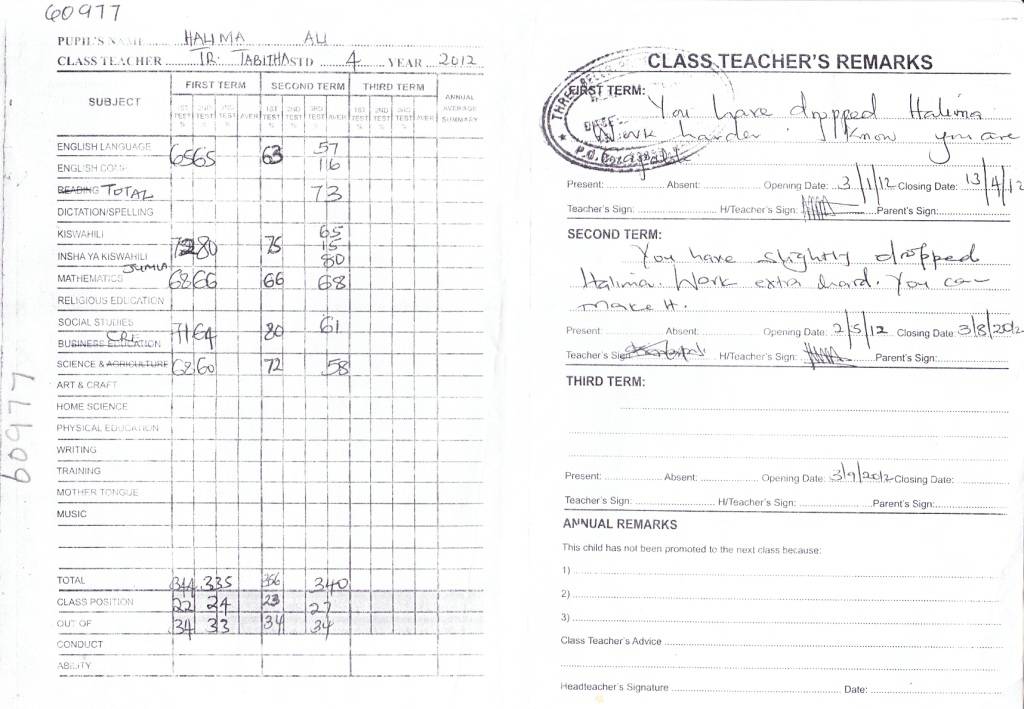 60977
PUPIL'S NAME HALIMA ALI
CLASS TEACHER TR. TABITHA STD 4 YEAR 2012
SUBJECT FIRST TERM SECOND TERM THIRD TERM ANNUAL AVERAGE SUMMARY
1ST TEST % 2ND TEST % 3RD TEST % AVER 1ST TEST % 2ND TEST % 3RD TEST % AVER 1ST TEST % 2ND TEST % 3RD TEST % AVER
ENGLISH LANGUAGE 65 65 63 57
ENGLISH COMP. 116
READING TOTAL 73
DICTATION/SPELLING
KISWAHILI 80 75 65
15
INSHA YA KISWAHILI JUMLA 80
MATHEMATICS 68 66 66 68
RELIGIOUS EDUCATION
SOCIAL STUDIES 71 64 80 61
BUSINESS EDUCATION CRE
SCIENCE & AGRICULTURE 68 60 72 58
ART & CRAFT
HOME SCIENCE
PHYSICAL EDUCATION
WRITING
TRAINING
MOTHER TONGUE
MUSIC
TOTAL 344 335 356 340
CLASS POSITION 22 24 23 27
OUT OF 34 33 34 34
CONDUCT
ABILITY
60977
CLASS TEACHER'S REMARKS
FIRST TERM: You have dropped Halima
Work harder. I know you are
DATE
P.O. Box
Present: Absent: Opening Date: 3/1/12 Closing Date: 13/4/12
Teacher's Sign: H/Teacher's Sign: Parent's Sign:
SECOND TERM:
You have slightly dropped
Halima. Work extra hard. You can
make it.
Present: Absent: Opening Date: 2/5/12 Closing Date: 3/8/2012
Teacher's Sign H/Teacher's Sign: Parent's Sign:
THIRD TERM:
Present: Absent: Opening Date: 3/9/2012 Closing Date:
Teacher's Sign: H/Teacher's Sign: Parent's Sign:
ANNUAL REMARKS
This child has not been promoted to the next class because:
1)
2)
3)
Class Teacher's Advice
Headteacher's Signature Date: